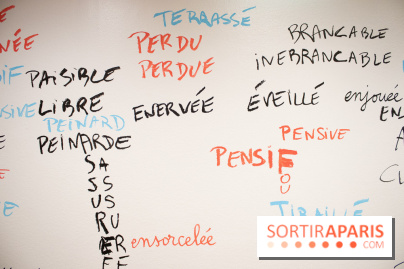 TERRASSÉ
BRANCABLE
NÉE
PERDU
INEBRANCABLE
PERDUE
SIF
PAISIBLE
ÉVEILLÉ
enjouée
SIVE
LIBRE
ENERVÉE
EN
PEINARD
PEINARDE
PENSIVE
PENSIF
FOU
SASSURRÉE
ensorcelée
TIRAILLÉ
SORTIRAPARIS
.COM